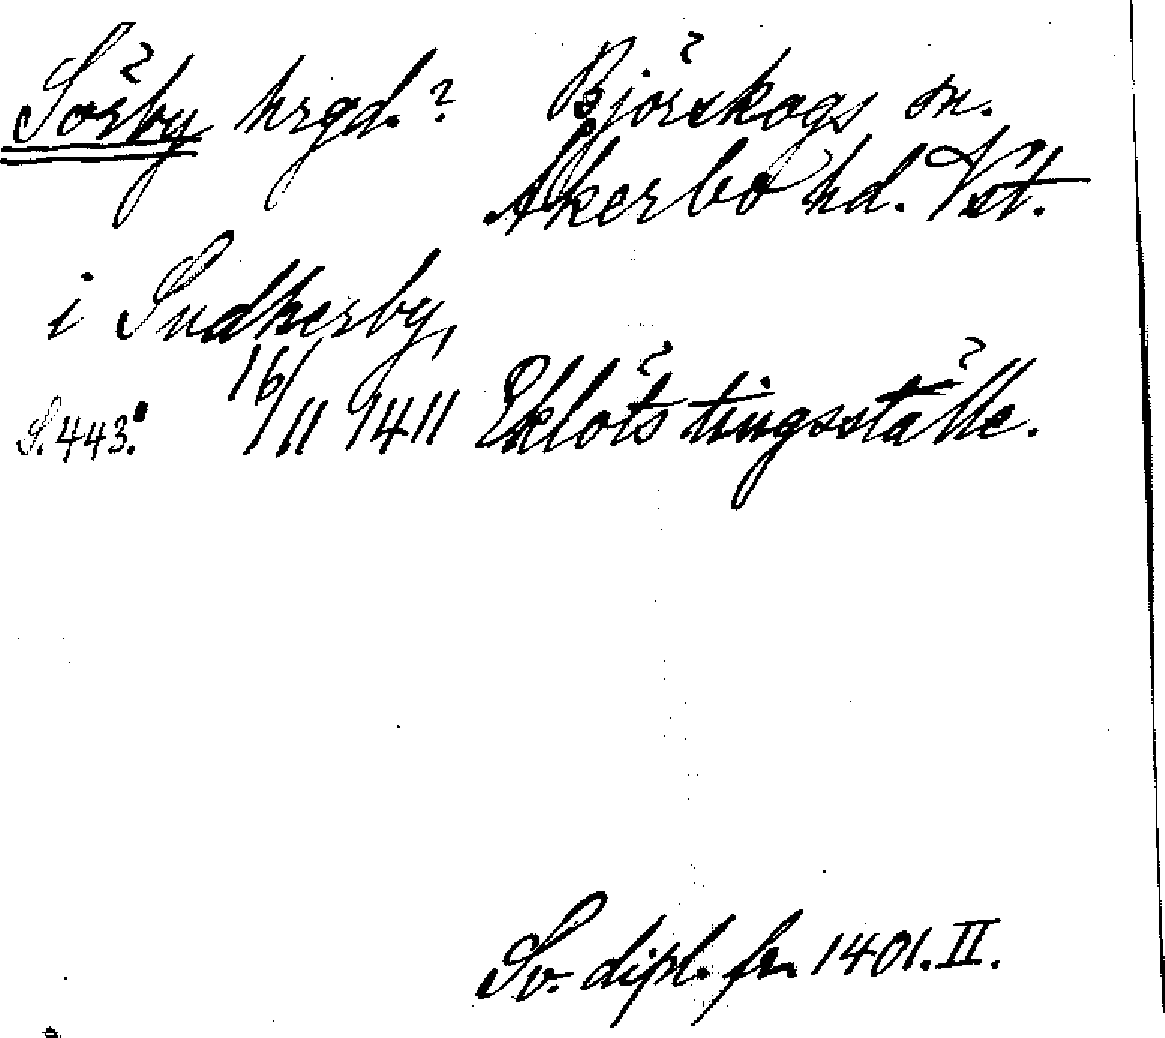 Sörby hrgd.? Björskogs sn.
Åkerbo hd. Vst.
i Sudherby,
S. 443. 16/11 1411 Eklöts tingsställe.
Sv. dipl. fr. 1401. II.